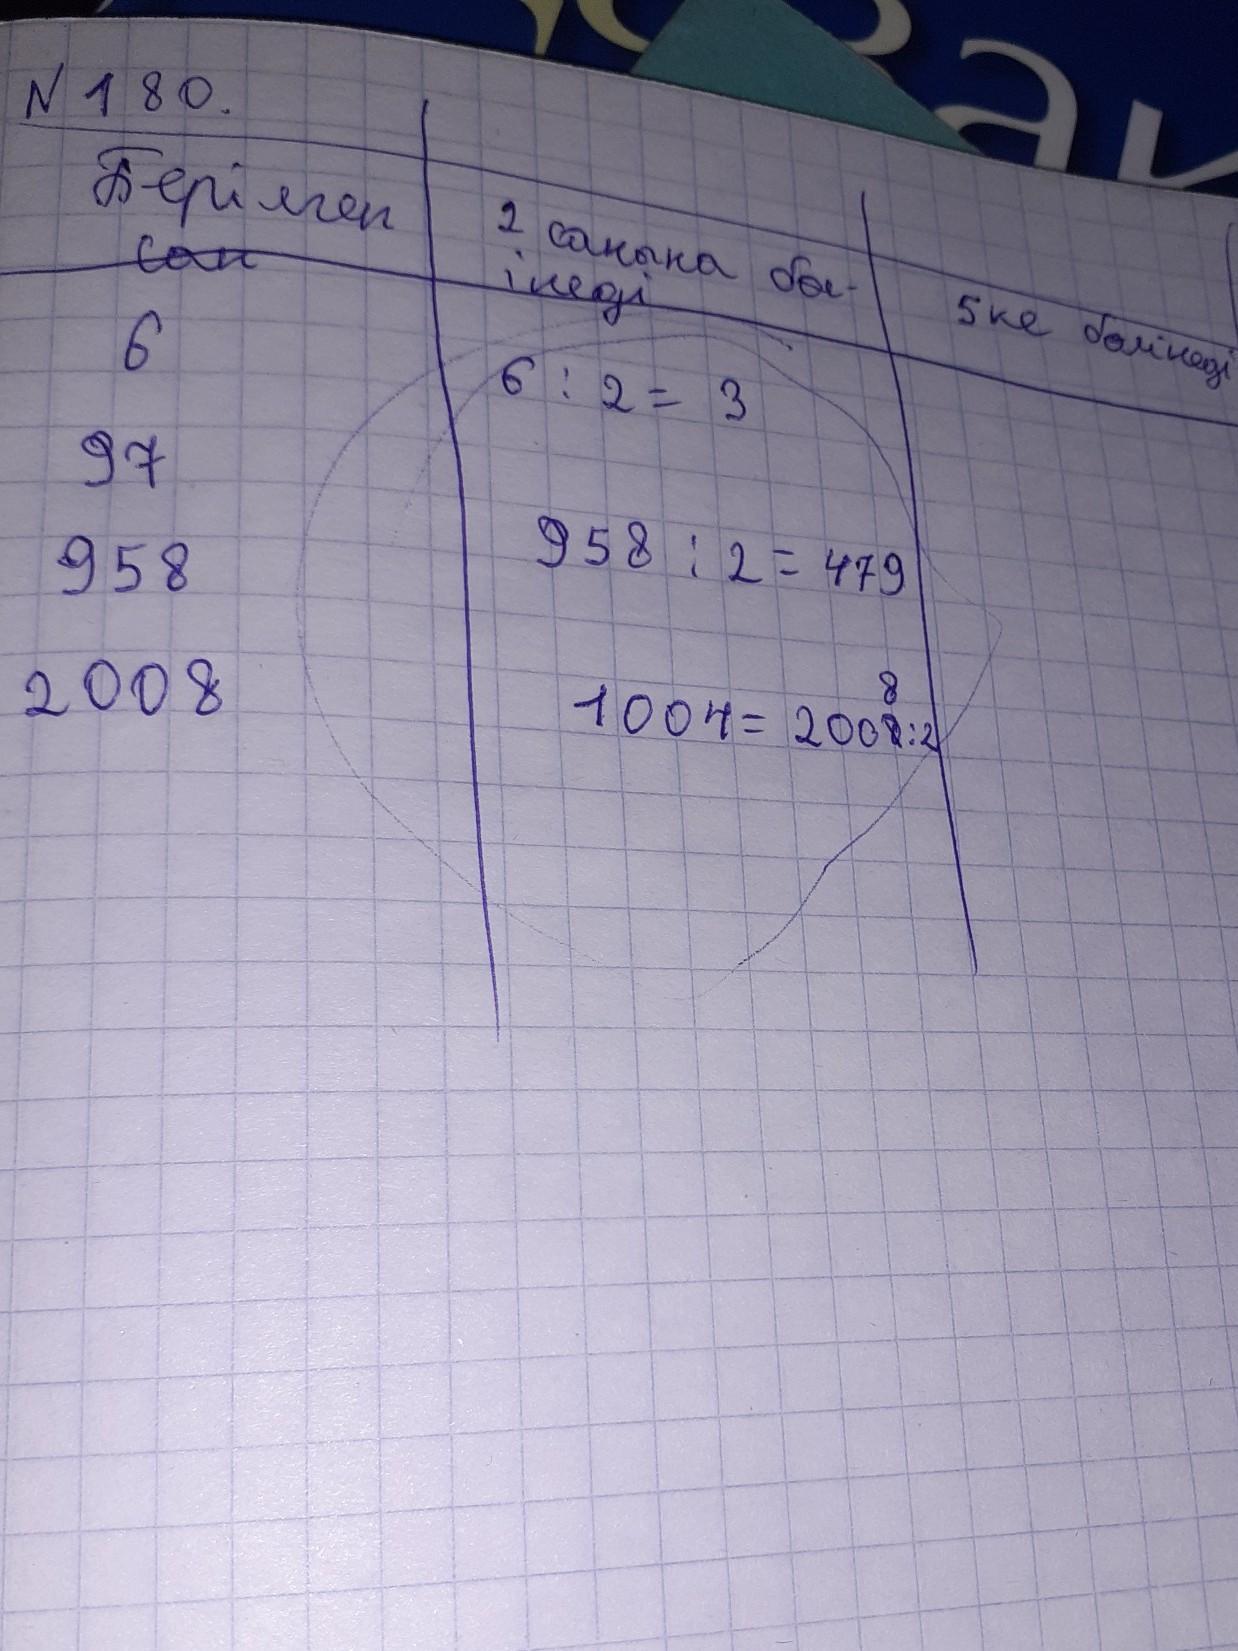 N 180.
Берілген
сан
2 санына бөл-
інеді
5ке бөлінеді
6
6 : 2 = 3
97
958
958 : 2 = 479
2008
8
1004 = 2008:2